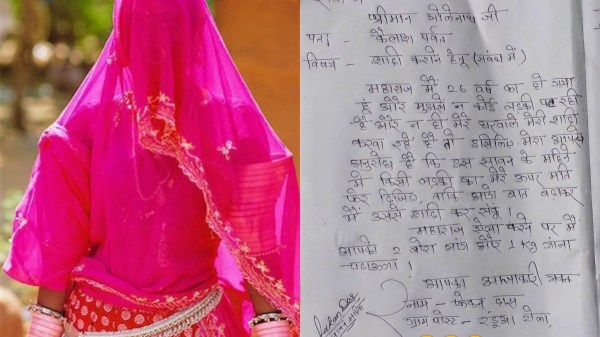 श्रीमान भोलेनाथ जी
पता - कैलाश पर्वत
विषय - शादी कराने हेतु (संबंध में)
महाराज मैं 26 वर्ष का हो गया
हूँ और मुझसे न कोई लडकी पट रही
है और न ही मेरे घरवाले मेरी शादी
करवा रहे है तो इसलिए मेरा आपसे
अनुरोध है कि इस सावन के महिने
मे किसी लडकी का मेरे ऊपर मति
फेर दिजिए ताकि आगे बात बढाकर
मैं उससे शादी कर सकूं !
महाराज ऐसा करने पर मैं
आपको 2 बोरा भांग और 1 kg गांजा
चढाऊंगा !
आपका आज्ञाकारी भक्त
नाम - दास
ग्राम पोस्ट - रंडुआ